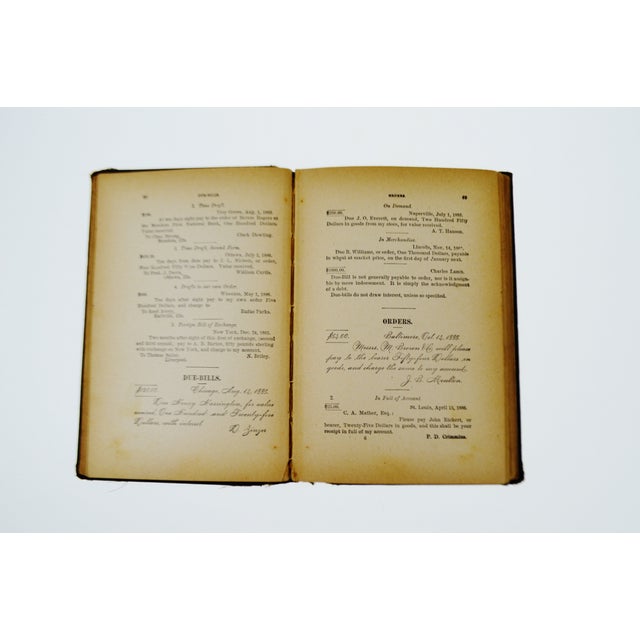 DUE-BILLS.
2. Time Draft.
Troy Grove, Aug. 1, 1882.
At ten days sight pay to the order of Barnes Rogers
at the Mendota First National Bank, One Hundred Dollars
Value received
Clark Dowling.
Mendota, Ills.
3. Time Draft, Second Form.
Ottawa, July 1, 1886.
Ten days after date pay to
order,
Nine Hundred Fifty Nine Dollars. Value received.
William Curtis.
4. Draft to our own Order.
Wenona, May 1, 1886.
Ten days after sight pay to my own order Five
Hundred Dollars, and charge to
Rufus Parks.
Earlville, Ills.
5. Foreign Bill of Exchange.
New York, Dec. 24, 1882.
Two months after sight of this first of exchange, (second
and third unpaid,) pay to A. B. fifty pounds sterling
with exchange on New York, and charge to my account.
To Thomas
N. Bailey.
Liverpool.
DUE-BILLS.
Chicago, Aug. 12, 1885.
Due Henry Harrington, for value
received, One Hundred and Twenty-five
Dollars, with interest.
ORDERS. 83
On Demand.
Naperville, July 1, 1882.
Due J. O. Everett, on demand, Two Hundred Fifty
Dollars in goods from my store, for value received.
A. T. Hanson.
In Merchandise.
Lincoln, Nov. 24,
Due R. Williams, or order, One Thousand Dollars, payable
in wheat at market price, on the first day of January next.
$1000.00. Charles Lamb.
Due-Bill is not generally payable to order, nor is it assign-
able by mere indorsement. It is simply the acknowledgment
of a debt.
Due-bills do not draw interest, unless so specified.
ORDERS.
$54.00. Baltimore, Oct. 12, 1885.
Messrs. M. Brown & Co. will please
pay to the bearer Fifty-four Dollars in
goods, and charge the same to my account.
J. B. Moulton.
2. In Full of Account
$25.00. St. Louis, April 15, 1886.
C. A. Mather, Esq.:
Please pay John Rickert, or
bearer, Twenty-Five Dollars in goods, and this shall be your
receipt in full of my account.
6 P. D. Crimmins.